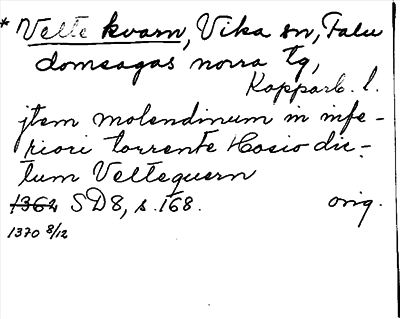 * Veltekvarn, Vika sn, Falu
domsagas norra tg,
Kopparb. l.
jtem molendinum in infe-
riori torrente Hosio dic-
tum Veltequern
1362 SD8, s. 168. orig.
1370 8/12